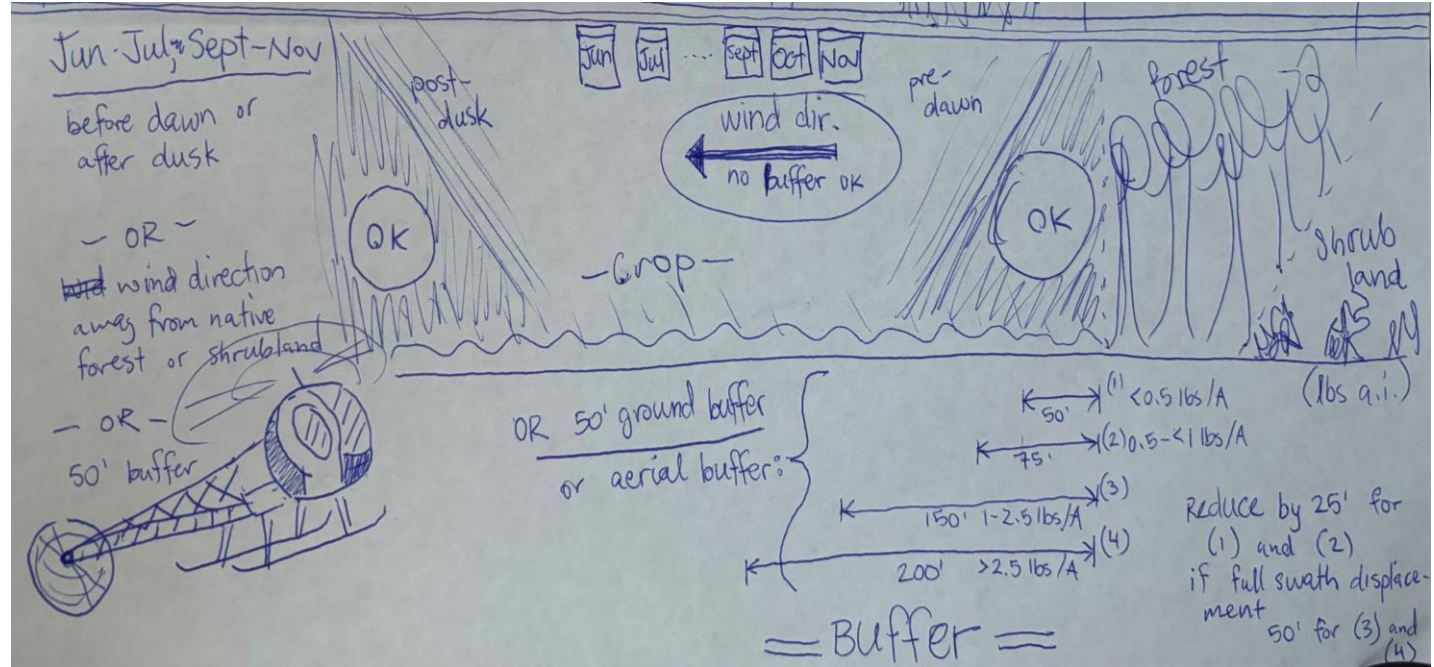 Jun-Jul, Sept-Nov
before dawn or
after dusk
- OR -
wind direction
away from native
forest or shrubland
- OR -
50' buffer
post-
dusk
OK
Jun Jul .... Sept Oct Nov
wind dir.
no buffer OK
-Crop-
pre-
dawn
OK
forest
shrub
land
OR 50' ground buffer
or aerial buffer:
(lbs a.i.)
50' (1) <0.5 lbs/A
75' (2) 0.5-<1 lbs/A
150' 1-2.5 lbs/A (3)
200' >2.5 lbs/A (4)
Reduce by 25' for
(1) and (2)
if full swath displace-
ment
50' for (3) and
(4)
= Buffer =